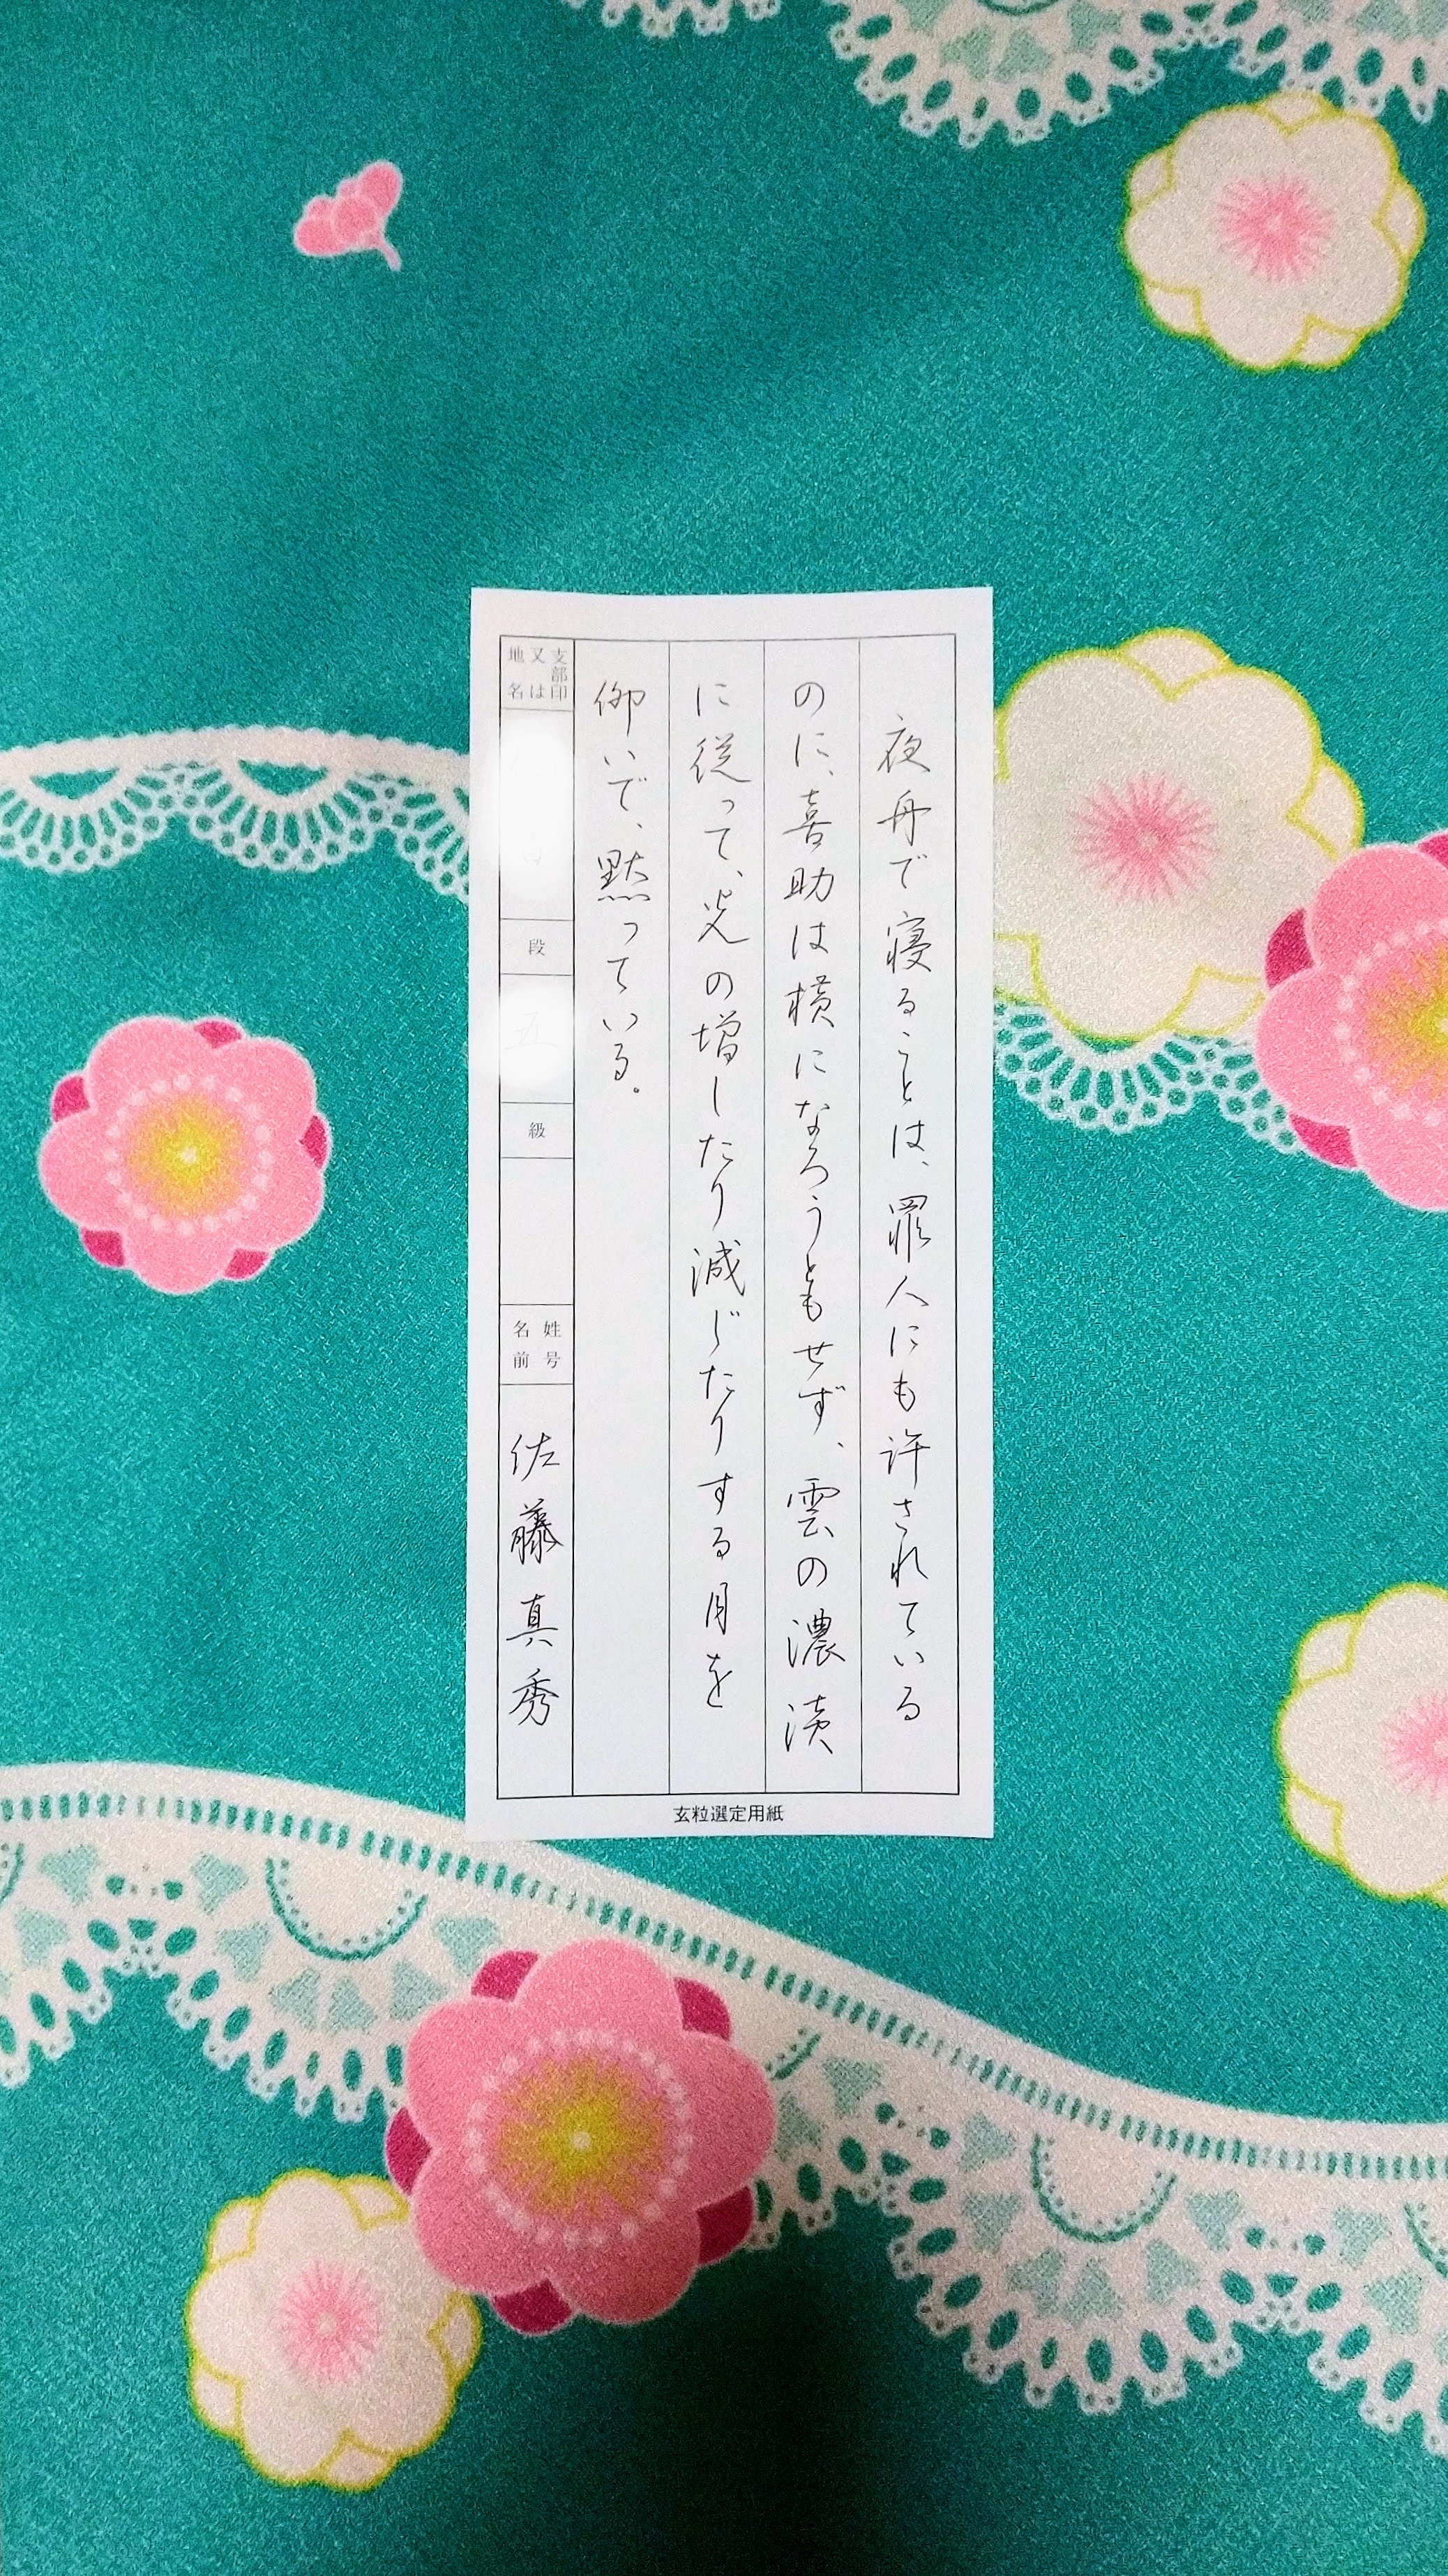 夜舟で寝ることは、罪人にも許されている
のに、喜助は横になろうともせず、雲の濃淡
に従って、光の増したり減じたりする月を
仰いで、黙っている。
支部印
又は
地名
段
五
級
姓号
名前
佐藤真秀
玄粒選定用紙